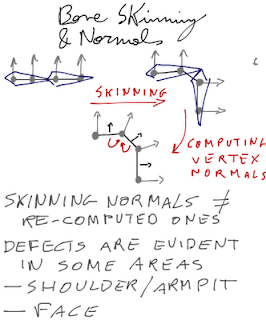 Bone Skinning
& Normals
SKINNING
COMPUTING
VERTEX
NORMALS
SKINNING NORMALS ≠
RE-COMPUTED ONES
DEFECTS ARE EVIDENT
IN SOME AREAS
— SHOULDER/ARMPIT
— FACE